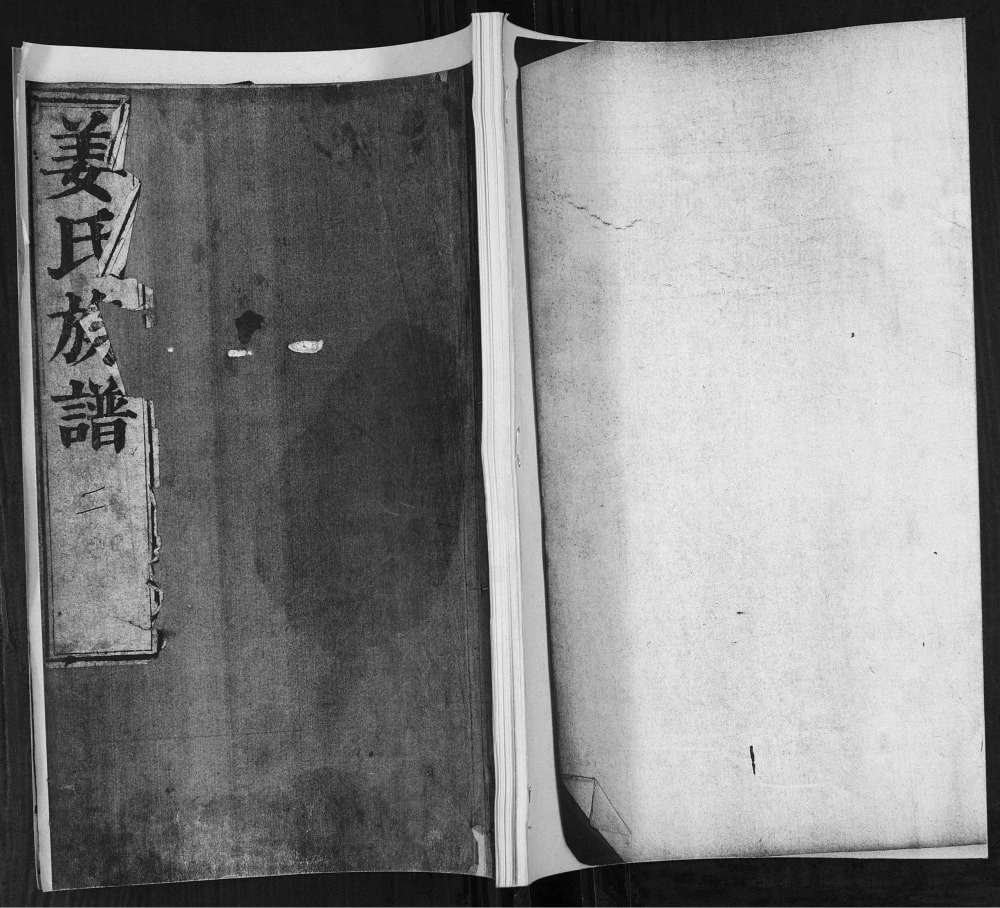 姜氏族譜
二